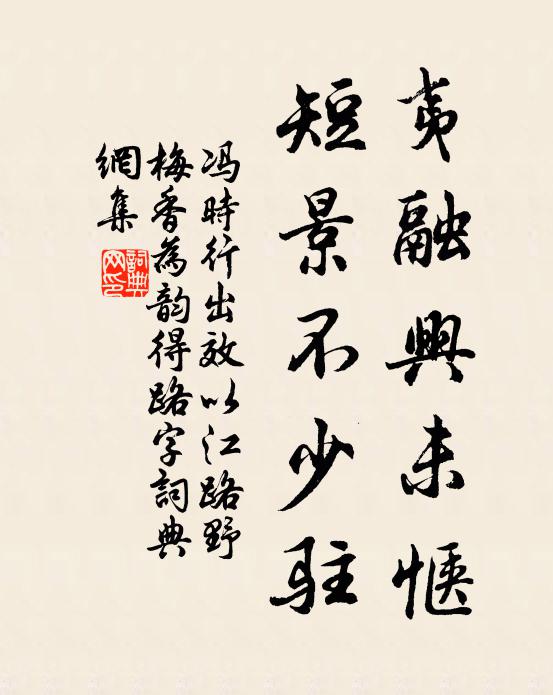 夷融興未愜
短景不少駐
馮時行出效以江路野
梅香為韵得路字詞典
網集
詞典网印